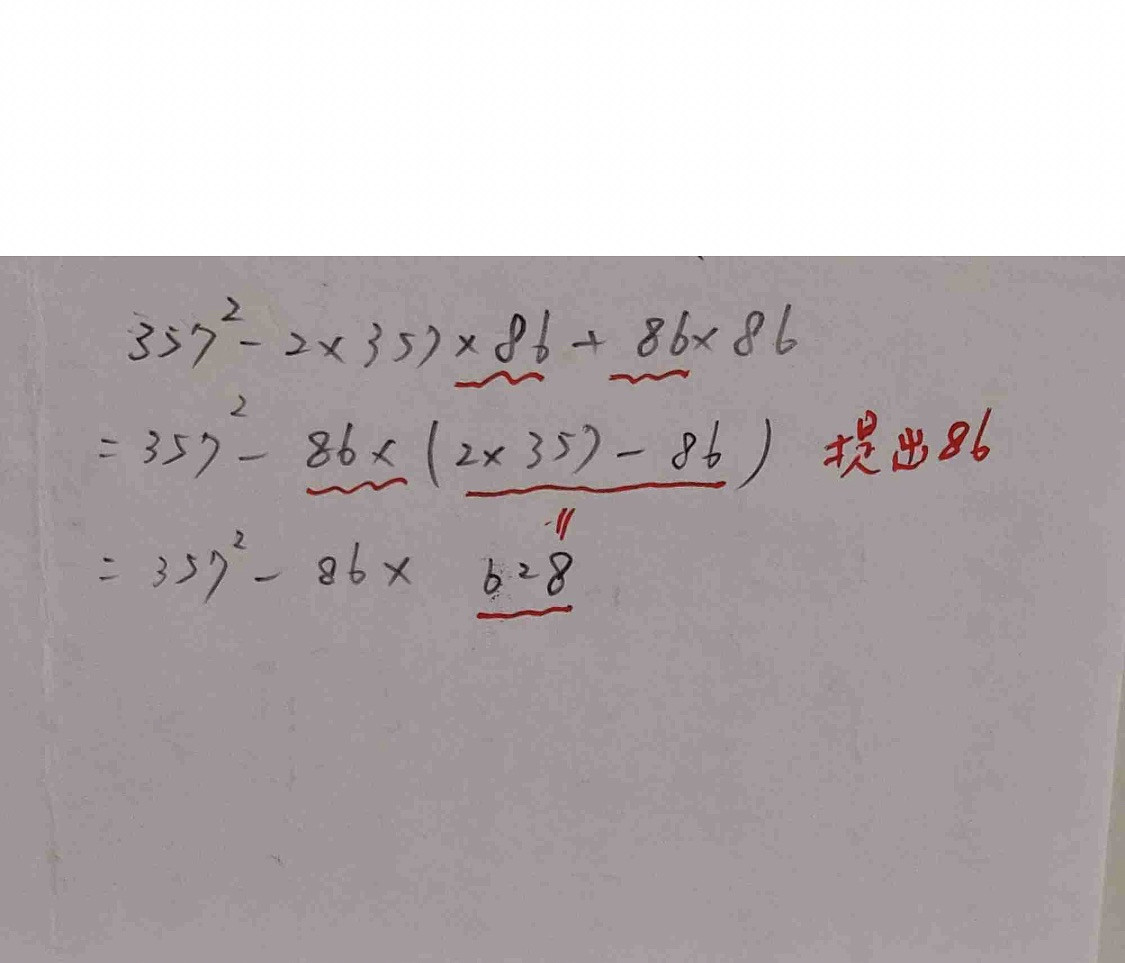 357² - 2×357×86 + 86×86
= 357² - 86×(2×357-86) 提出86
〃
= 357² - 86× 628